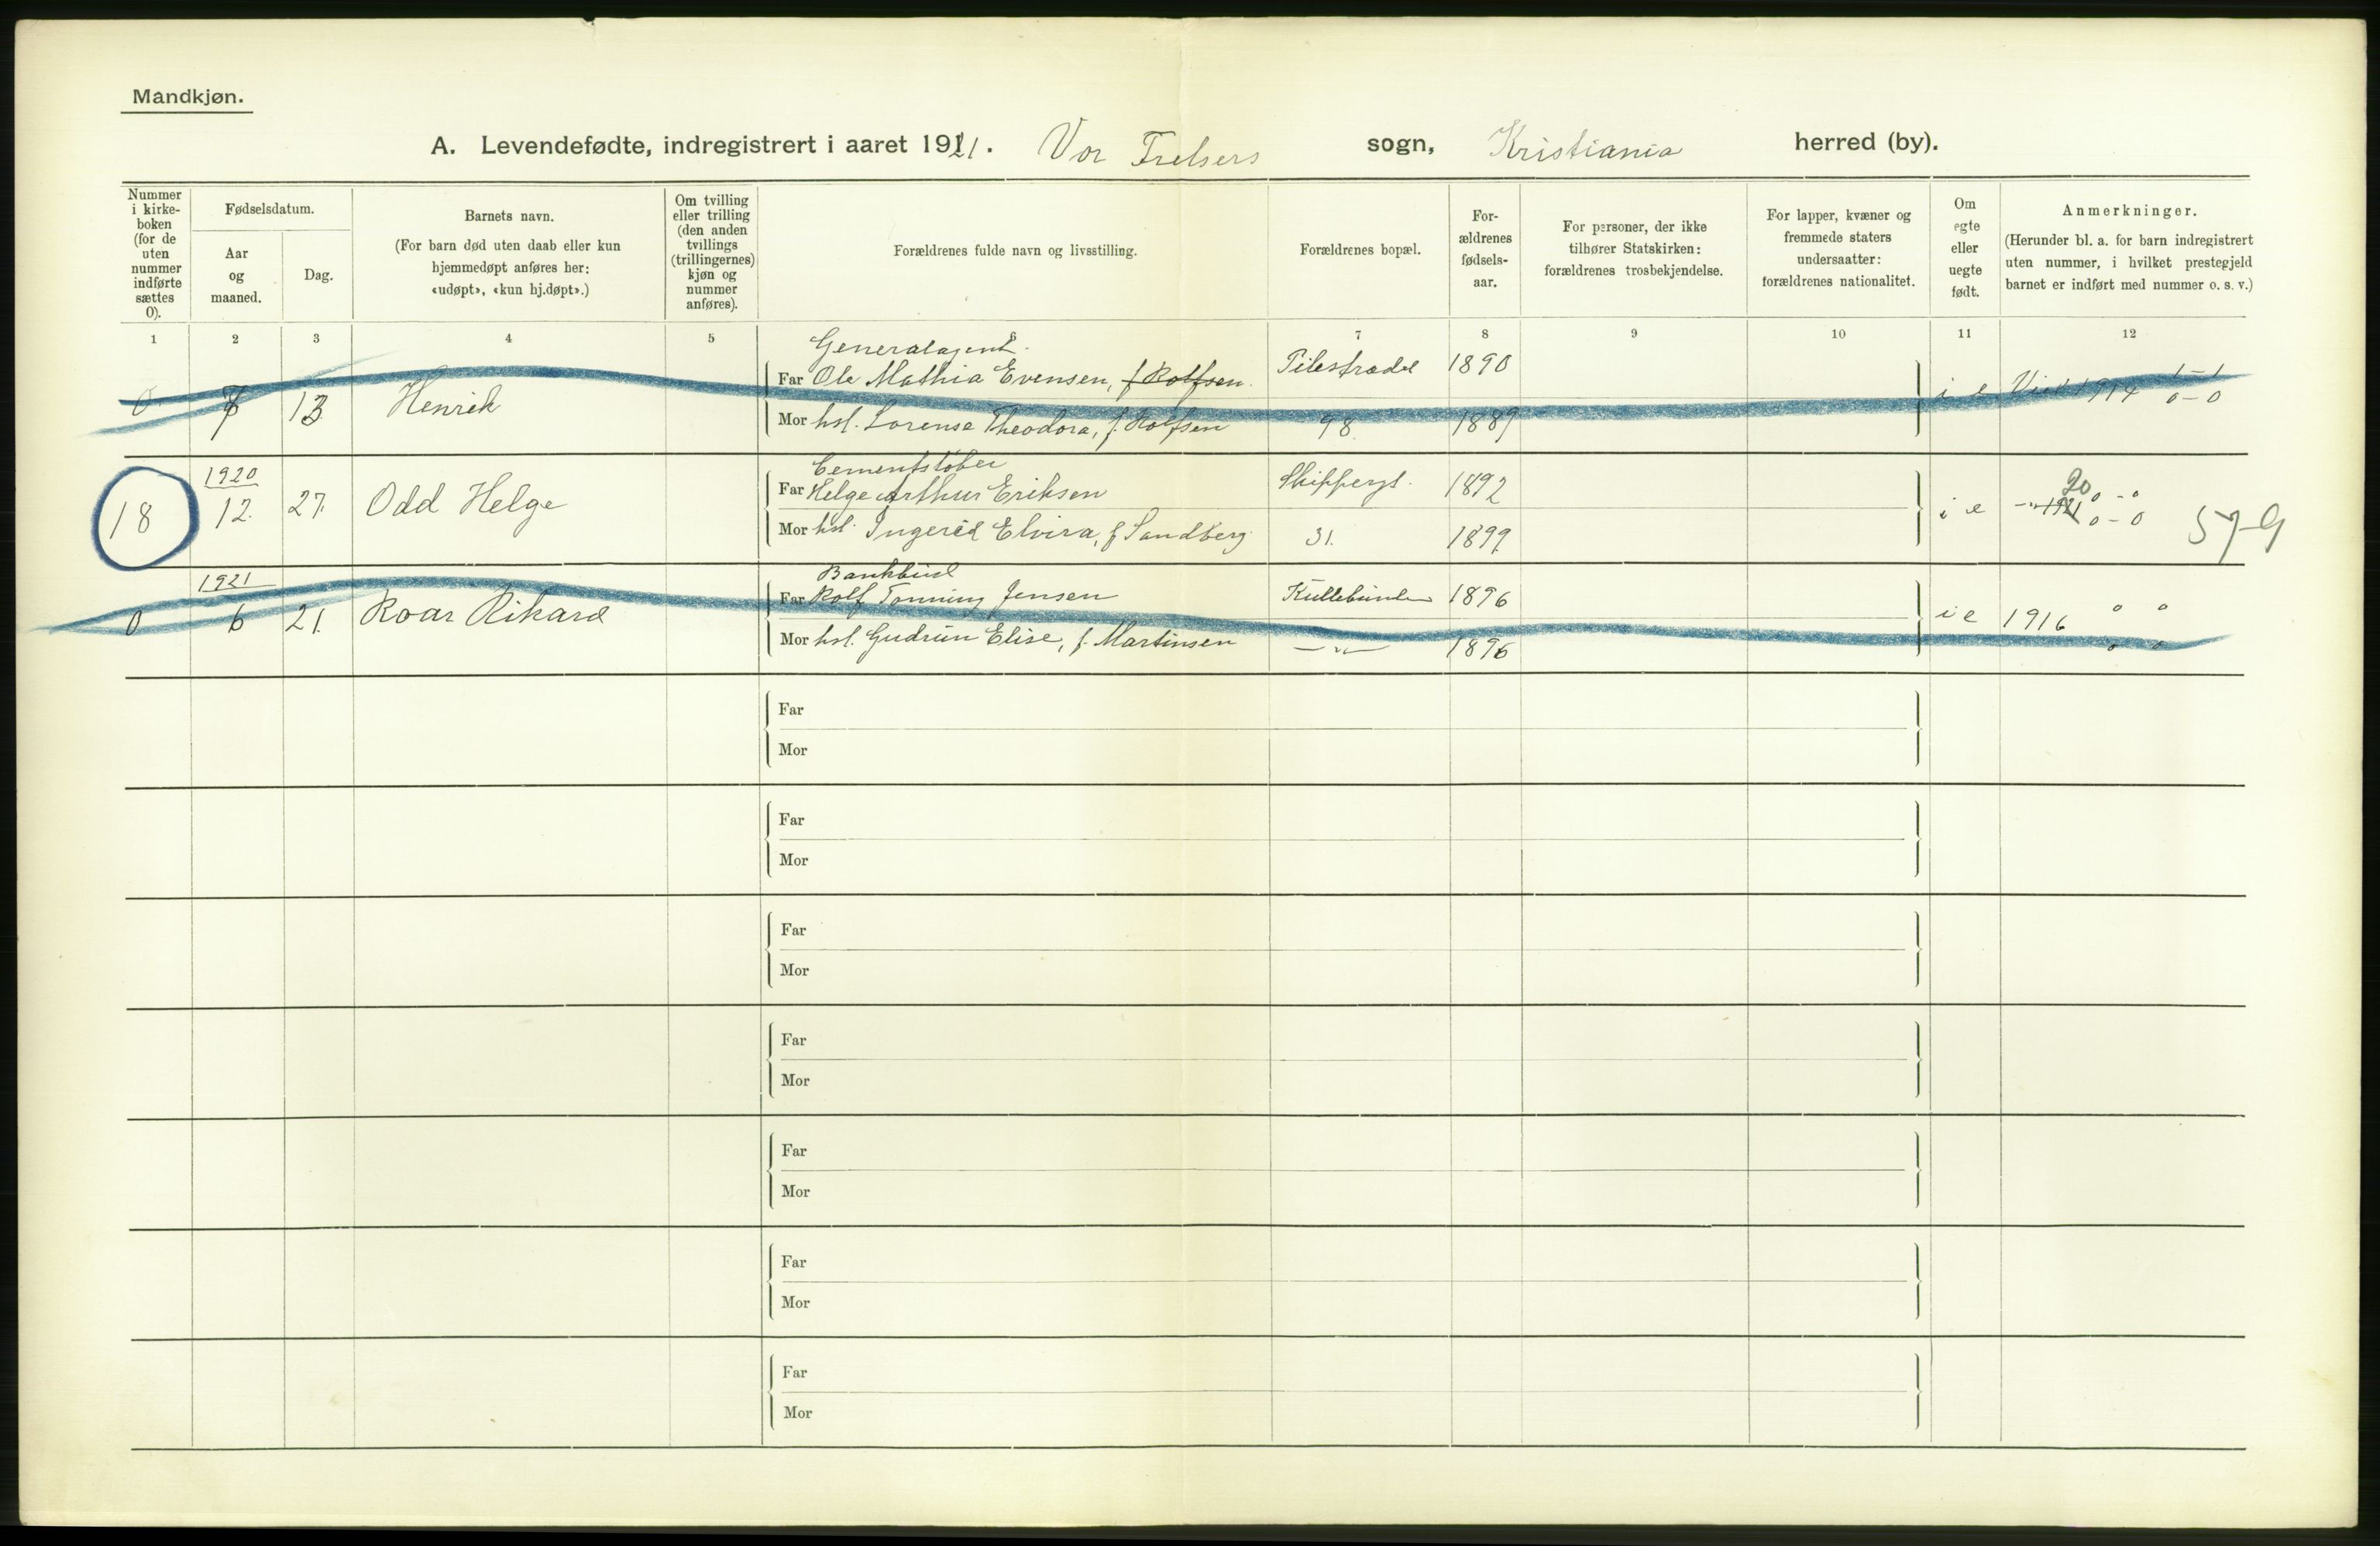 Mandkjøn.
A. Levendefødte, indregistrert i aaret 1921. Vor Frelsers sogn, Kristiania herred (by).
Nummer i kirke-boken (for de uten nummer indførte sættes 0).
Fødselsdatum.
Aar og maaned.
Dag.
Barnets navn.
(For barn død uten daab eller kun hjemmedøpt anføres her: «udøpt», «kun hj.døpt».)
Om tvilling eller trilling (den anden tvillings (trillingernes) kjøn og nummer anføres).
Forældrenes fulde navn og livsstilling.
Forældrenes bopæl.
For-ældrenes fødsels-aar.
For personer, der ikke tilhører Statskirken: forældrenes trosbekjendelse.
For lapper, kvæner og fremmede staters undersaatter: forældrenes nationalitet.
Om egte eller uegte født.
Anmerkninger.
(Herunder bl. a. for barn indregistrert uten nummer, i hvilket prestegjeld barnet er indført med nummer o. s. v.)
1 2 3 4 5 7 8 9 10 11 12
Generalagent
0 7 13 Henrik Far Ole Mathia Evensen, f Rolfsen. Pilestrædet 1890 i e Viet 1914 1-1
Mor hst. Lorense Theodora, f. Rolfsen 98 1889 0-0
1920 Cementstøber
18 12. 27. Odd Helge Far Helge Arthur Eriksen Skippergt. 1892 i e -"- 1921 20 0 - 0
Mor hst. Ingerid Elvira, f Sandberg 31. 1899 0 - 0 57-9
1921 Bankbud
0 6 21. Roar Rikard Far Rolf Tønning Jensen Kullebunden 1896 i e 1916 0 0
Mor hst. Gudrun Elise, f. Martinsen -"- 1896 0 0
Far
Mor
Far
Mor
Far
Mor
Far
Mor
Far
Mor
Far
Mor
Far
Mor